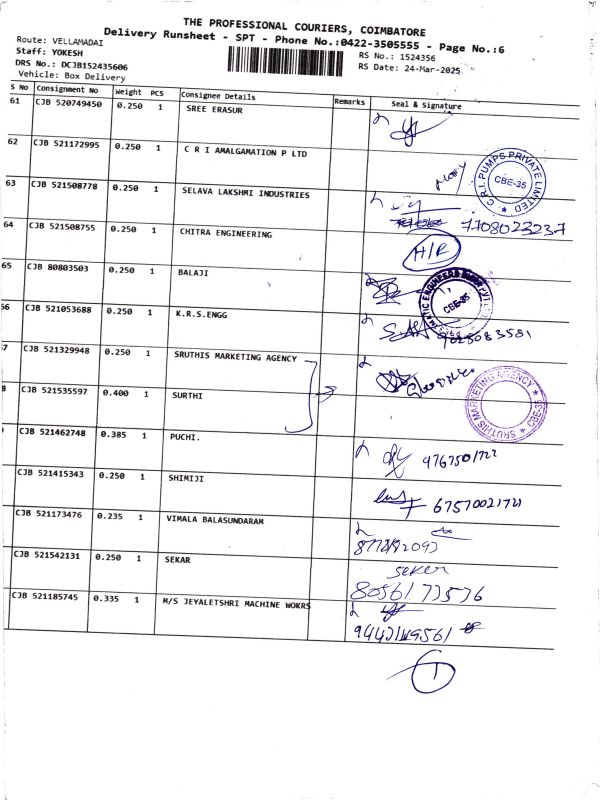 THE PROFESSIONAL COURIERS, COIMBATORE
Delivery Runsheet - SPT - Phone No.:0422-3505555 - Page No.:6
Route: VELLAMADAI
Staff: YOKESH
DRS No.: DCJB152435606
Vehicle: Box Delivery
RS No.: 1524356
RS Date: 24-Mar-2025
S No Consignment No Weight PCS Consignee Details Remarks Seal & Signature
61 CJB 520749450 0.250 1 SREE ERASUR
62 CJB 521172995 0.250 1 C R I AMALGAMATION P LTD
C.R.I. PUMPS PRIVATE LIMITED CBE-35
63 CJB 521508778 0.250 1 SELAVA LAKSHMI INDUSTRIES
7708023237
64 CJB 521508755 0.250 1 CHITRA ENGINEERING H/R
65 CJB 80803503 0.250 1 BALAJI
CBE-35
66 CJB 521053688 0.250 1 K.R.S.ENGG
9025083581
67 CJB 521329948 0.250 1 SRUTHIS MARKETING AGENCY
SRUTHIS MARKETING AGENCY CBE-35
8 CJB 521535597 0.400 1 SURTHI
CJB 521462748 0.385 1 PUCHI. 9767501722
CJB 521415343 0.250 1 SHIMIJI 67570021721
CJB 521173476 0.235 1 VIMALA BALASUNDARAM
CJB 521542131 0.250 1 SEKAR seker
8056173536
CJB 521185745 0.335 1 M/S JEYALETSHRI MACHINE WOKRS